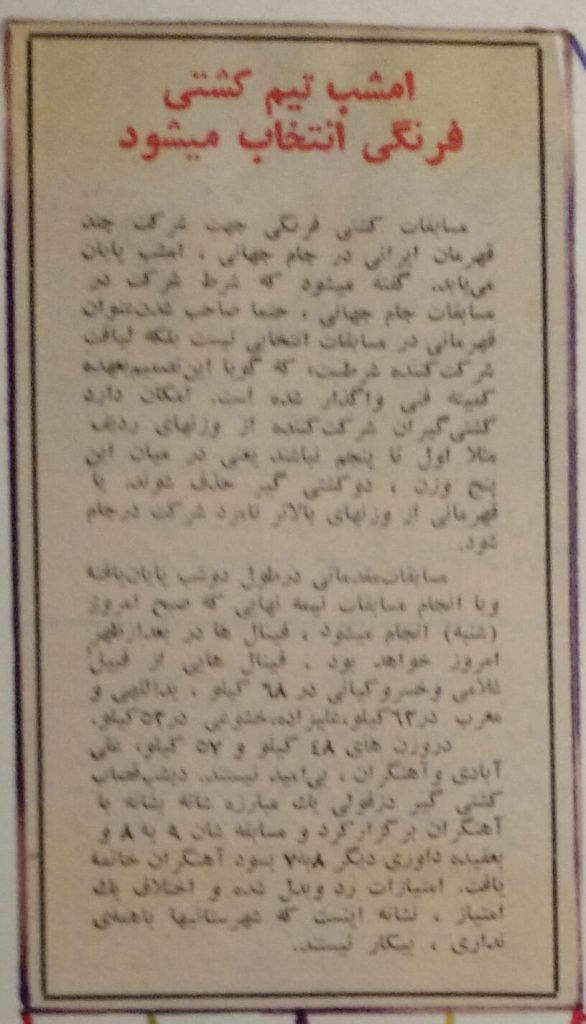 امشب تیم کشتی
فرنگی انتخاب میشود
مسابقات کشتی فرنگی جهت شرکت چند
قهرمان ایرانی در جام جهانی ، امشب پایان
می‌یابد. گفته میشود که شرط شرکت در
مسابقات جام جهانی ، حتما صاحب شدن‌عنوان
قهرمانی در مسابقات انتخابی نیست بلکه لیاقت
شرکت‌کننده شرطست، که گویا این‌تصمیم‌بعهده
کمیته فنی واگذار شده است. امکان دارد
کشتی‌گیران شرکت‌کننده از وزنهای ردیف
مثلا اول تا پنجم نباشند یعنی در میان این
پنج وزن ، دوکشتی گیر حذف شوند. یا
قهرمانی از وزنهای بالاتر نامزد شرکت درجام
شود.
مسابقات‌مقدماتی درطول دوشب پایان‌یافته
وبا انجام مسابقات نیمه نهایی که صبح امروز
(شنبه) انجام میشود ، فینال ها در بعدازظهر
امروز خواهد بود . فینال هایی از قبیل
غلامی وخسروکیانی در ۶۸ کیلو ، یداللهی و
معرب در۶۲کیلو،علیزاده،خشوعی در۵۲کیلو.
دروزن های ۴۸ کیلو و ۵۷ کیلو، علی
آبادی وآهنگران ، بی‌امید نیستند. دیشب‌قصاب
کشتی گیر دزفولی یك مبارزه شانه بشانه با
آهنگران برگزارکرد و مسابقه شان ۹ به ۸ و
بعقیده داوری دیگر ۸به۷ بسود آهنگران خاتمه
یافت. امتیازات رد وبدل شده و اختلاف یك
امتیاز ، نشانه اینست که شهرستانیها باهمه‌ی
نداری ، بیکار نیستند.